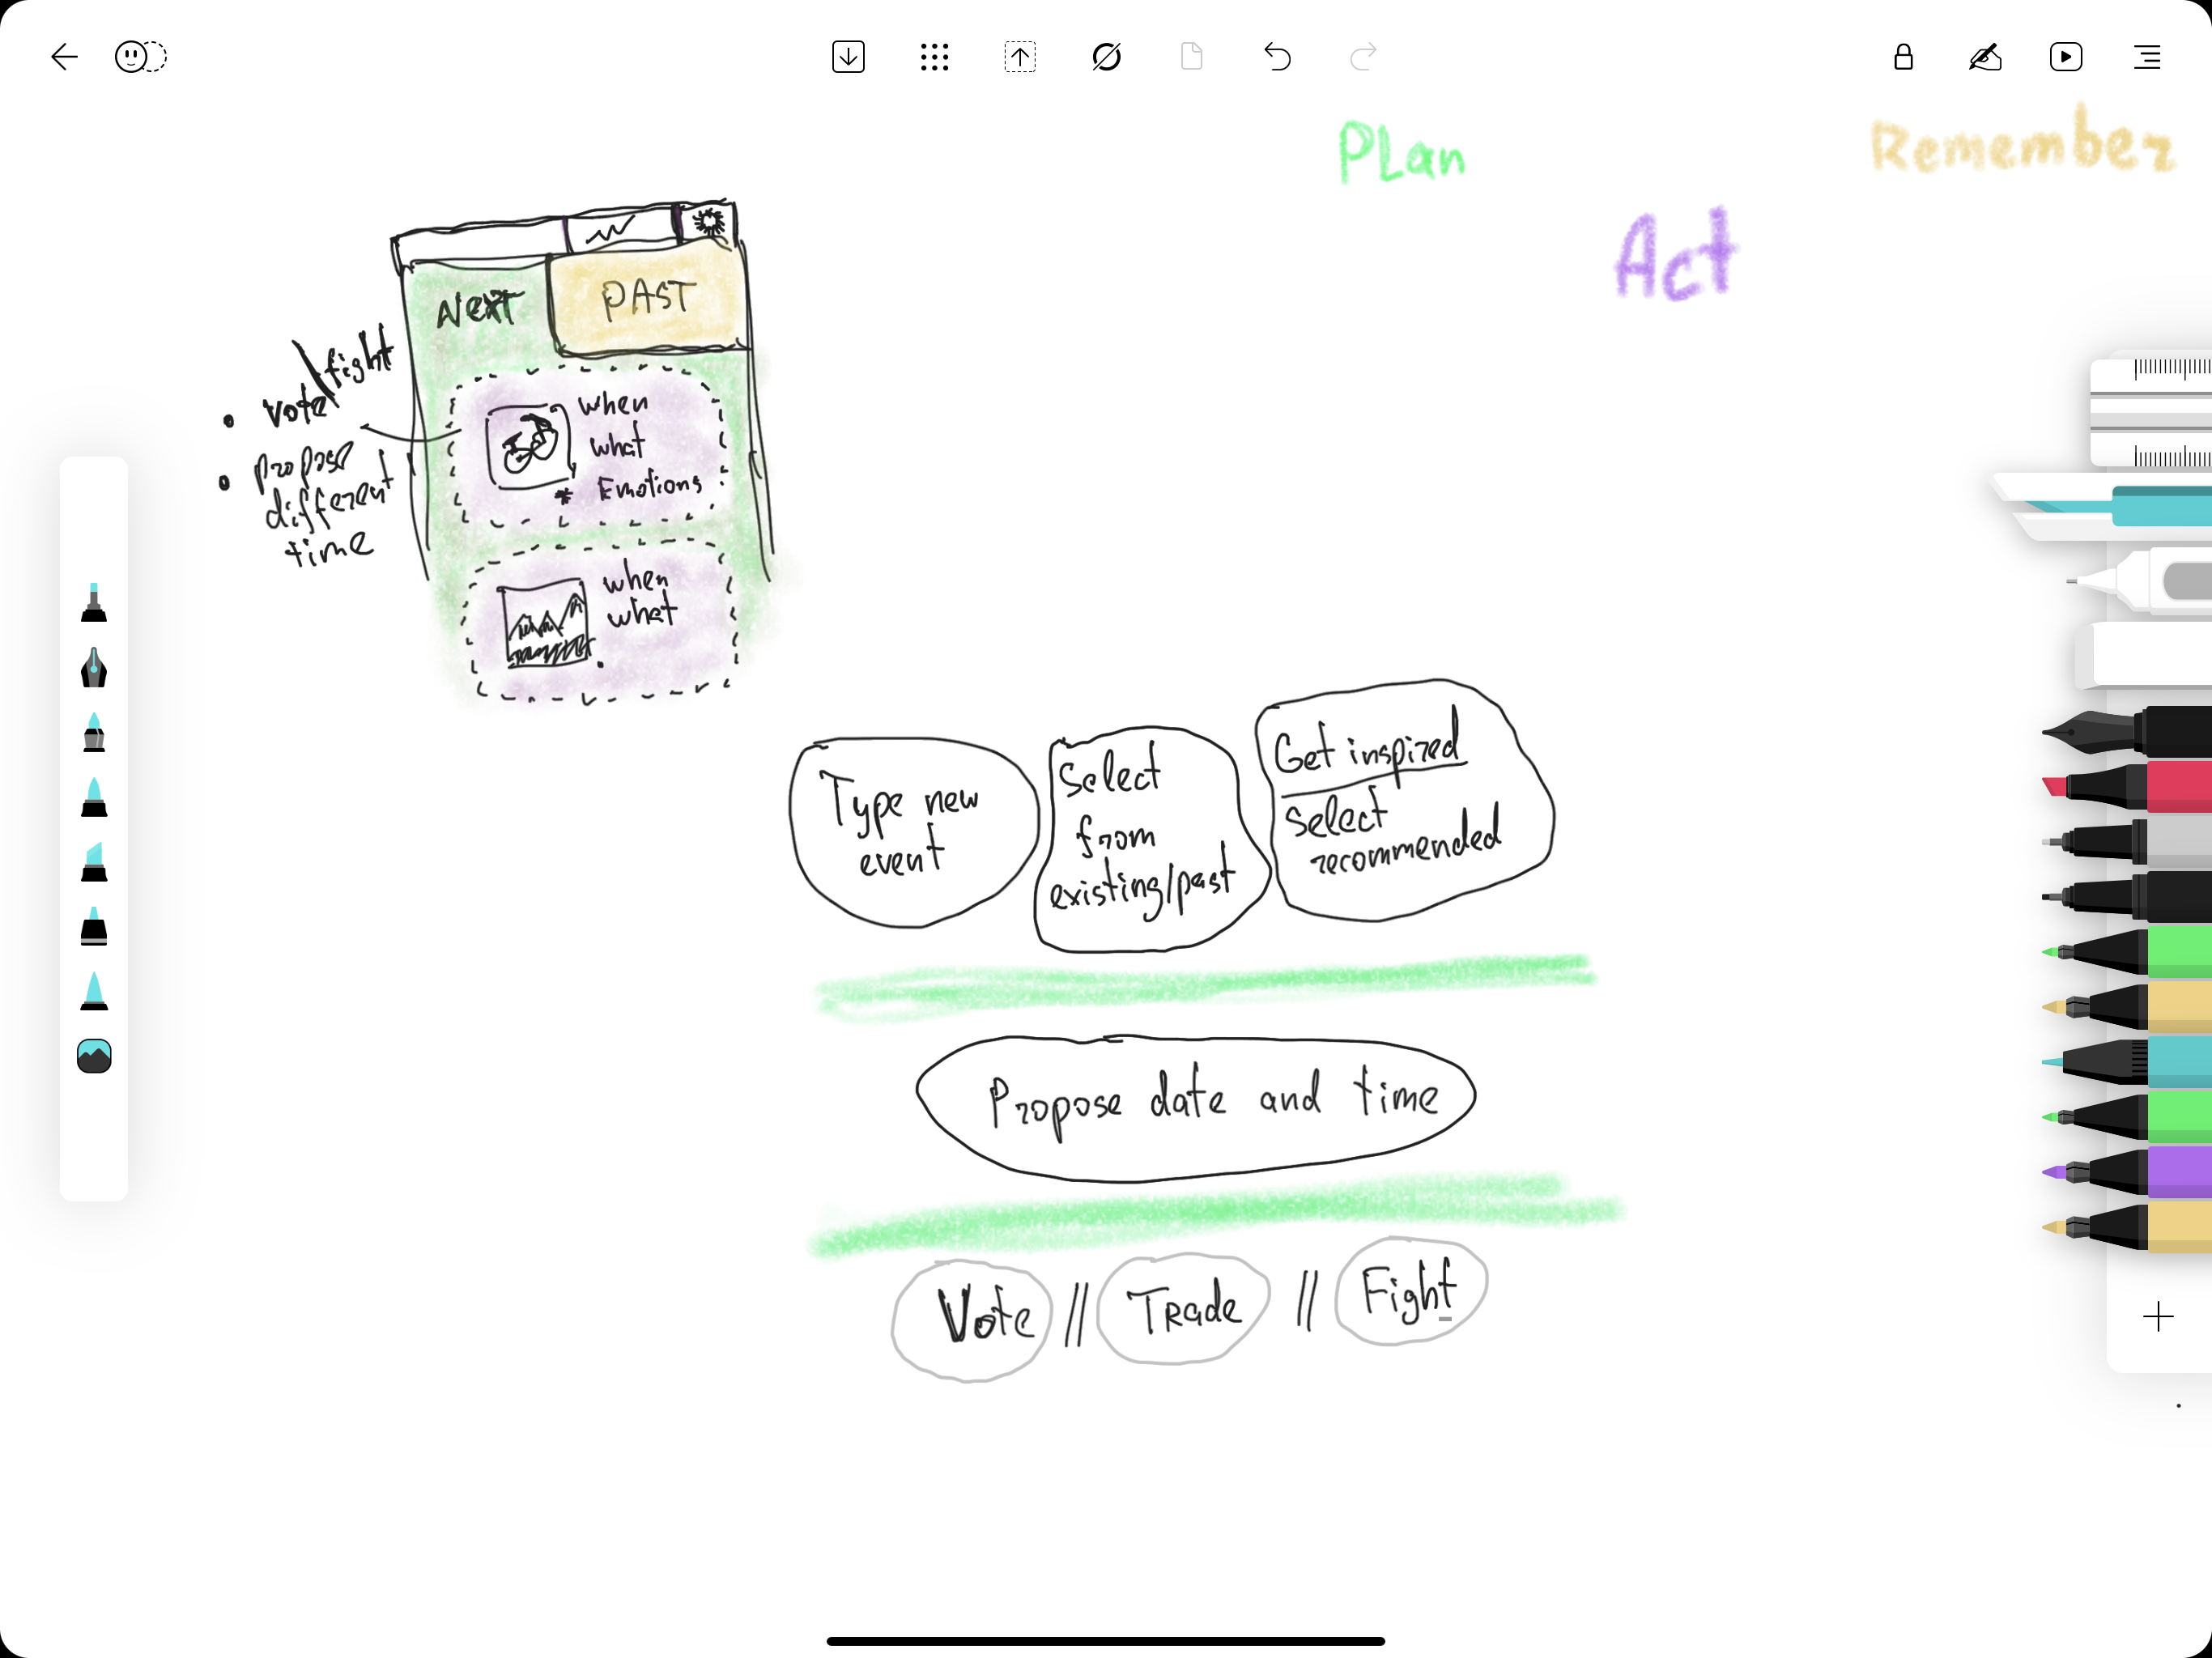 PLan
Remember
Act
NEXT
PAST
fight
• vote
• propose
different
time
when
what
* Emotions
when
what
Type new
event
Select
from
existing/past
Get inspired
Select
recommended
Propose date and time
Vote // Trade // Fight